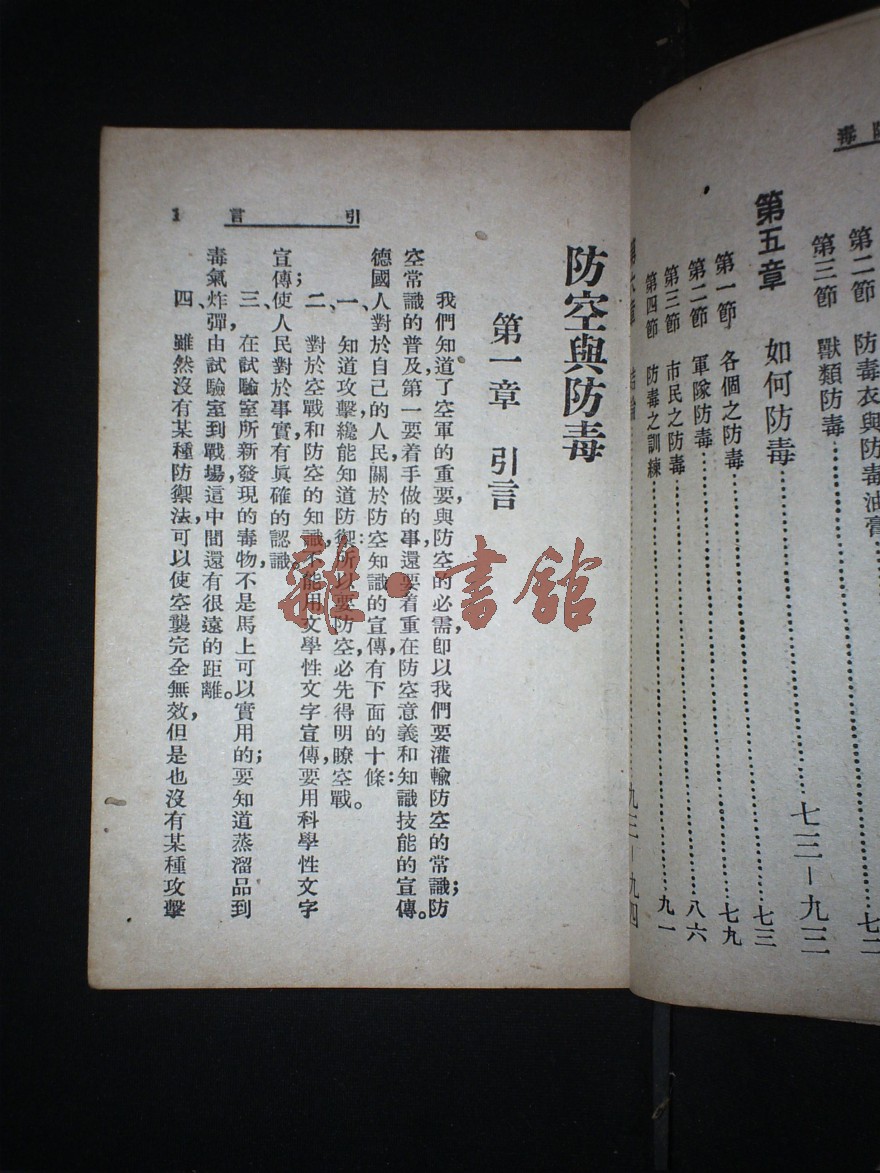 防毒
第二節　防毒衣與防毒油膏
第三節　獸類防毒
第五章　如何防毒……七三－九三
第一節　各個之防毒……七三
第二節　軍隊防毒……七九
第三節　市民之防毒……八六
第四節　防毒之訓練……九一
九三－九四
引言　1
防空與防毒
第一章　引言
我們知道了空軍的重要，與防空的必需，卽以我們要灌輸防空的常識；防
空常識的普及，第一要着手做的事，還要着重在防空意義和知識技能的宣傳。
德國人對於自己的人民關於防空知識的宣傳，有下面的十條：
一、知道攻擊，纔能知道防禦，所以要防空，必先得明瞭空戰。
二、對於空戰和防空的知識，不能用文學性文字宣傳，要用科學性文字
宣傳；使人民對於事實有眞確的認識。
三、在試驗室所新發現的毒物，不是馬上可以實用的；要知道蒸溜品到
毒氣炸彈，由試驗室到戰場，這中間還有很遠的距離。
四、雖然沒有某種防禦法，可以使空襲完全無效，但是也沒有某種攻擊
雜·書館